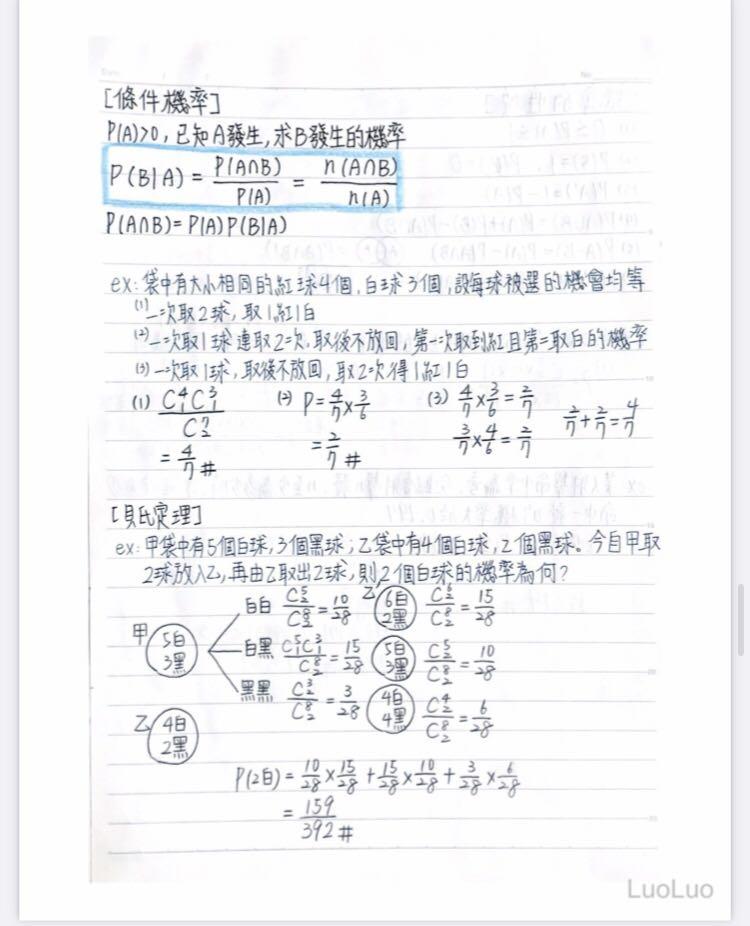 [條件機率]
P(A)>0, 已知A發生, 求B發生的機率
P(B|A) = P(A∩B)/P(A) = n(A∩B)/n(A)
P(A∩B)=P(A)P(B|A)
ex: 袋中有大小相同的紅球4個, 白球3個, 設每球被選的機會均等
(1) 一次取2球, 取1紅1白
(2) 一次取1球連取2次, 取後不放回, 第一次取到紅且第二取白的機率
(3) 一次取1球, 取後不放回, 取2次得1紅1白
(1) C⁴₁C³₁/C⁷₂ (2) P=4/7×3/6 (3) 4/7×3/6=2/7
= 4/7 # = 2/7 # 3/7×4/6=2/7 2/7+2/7=4/7
[貝氏定理]
ex: 甲袋中有5個白球, 3個黑球; 乙袋中有4個白球, 2個黑球。今自甲取
2球放入乙, 再由乙取出2球, 則2個白球的機率為何?
甲 5白 3黑
白白 C⁵₂/C⁸₂=10/28 乙 6白 2黑 C⁶₂/C⁸₂=15/28
白黑 C⁵₁C³₁/C⁸₂=15/28 5白 3黑 C⁵₂/C⁸₂=10/28
黑黑 C³₂/C⁸₂=3/28 4白 4黑 C⁴₂/C⁸₂=6/28
乙 4白 2黑
P(2白) = 10/28×15/28+15/28×10/28+3/28×6/28
= 159/392 #
LuoLuo